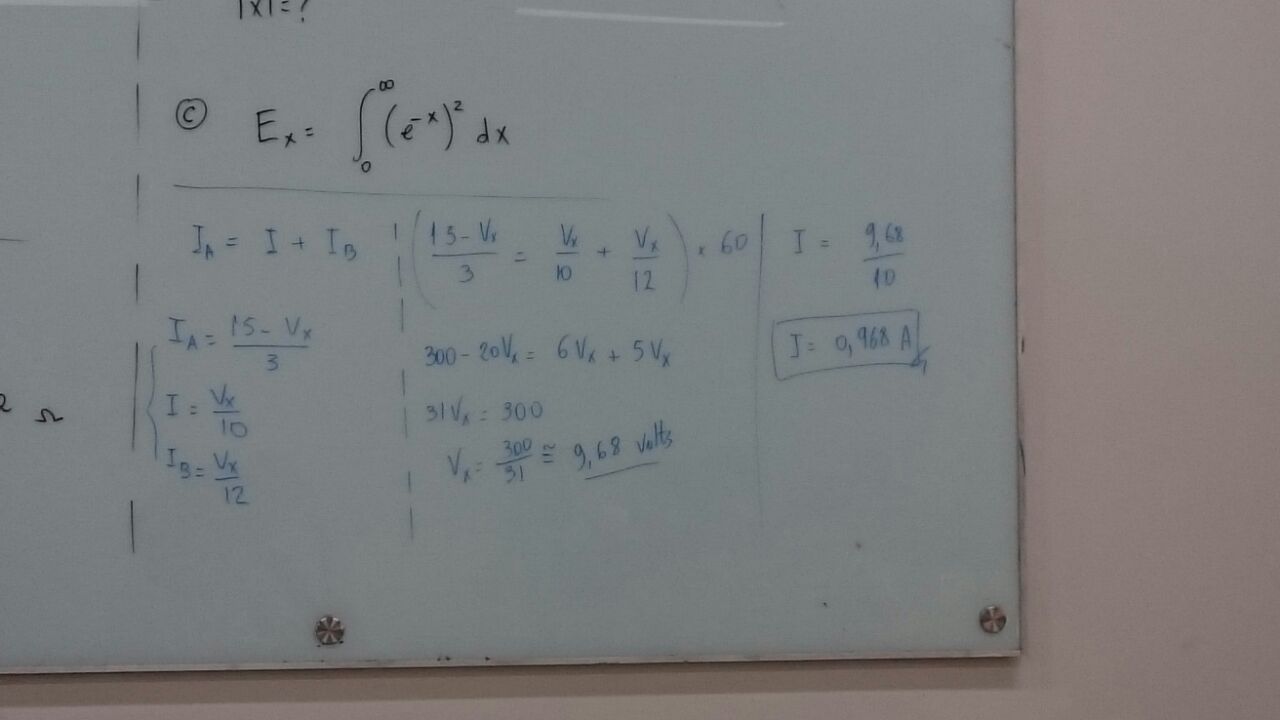 |x| = ?
Ⓒ Eₓ = ∫₀^∞ (e^-x)² dx
I_A = I + I_B
I_A = 15 - Vₓ / 3
I = Vₓ / 10
I_B = Vₓ / 12
Ω
(15 - Vₓ / 3 = Vₓ / 10 + Vₓ / 12) × 60
300 - 20Vₓ = 6Vₓ + 5Vₓ
31Vₓ = 300
Vₓ = 300 / 31 ≅ 9,68 volts
I = 9,68 / 10
I = 0,968 A